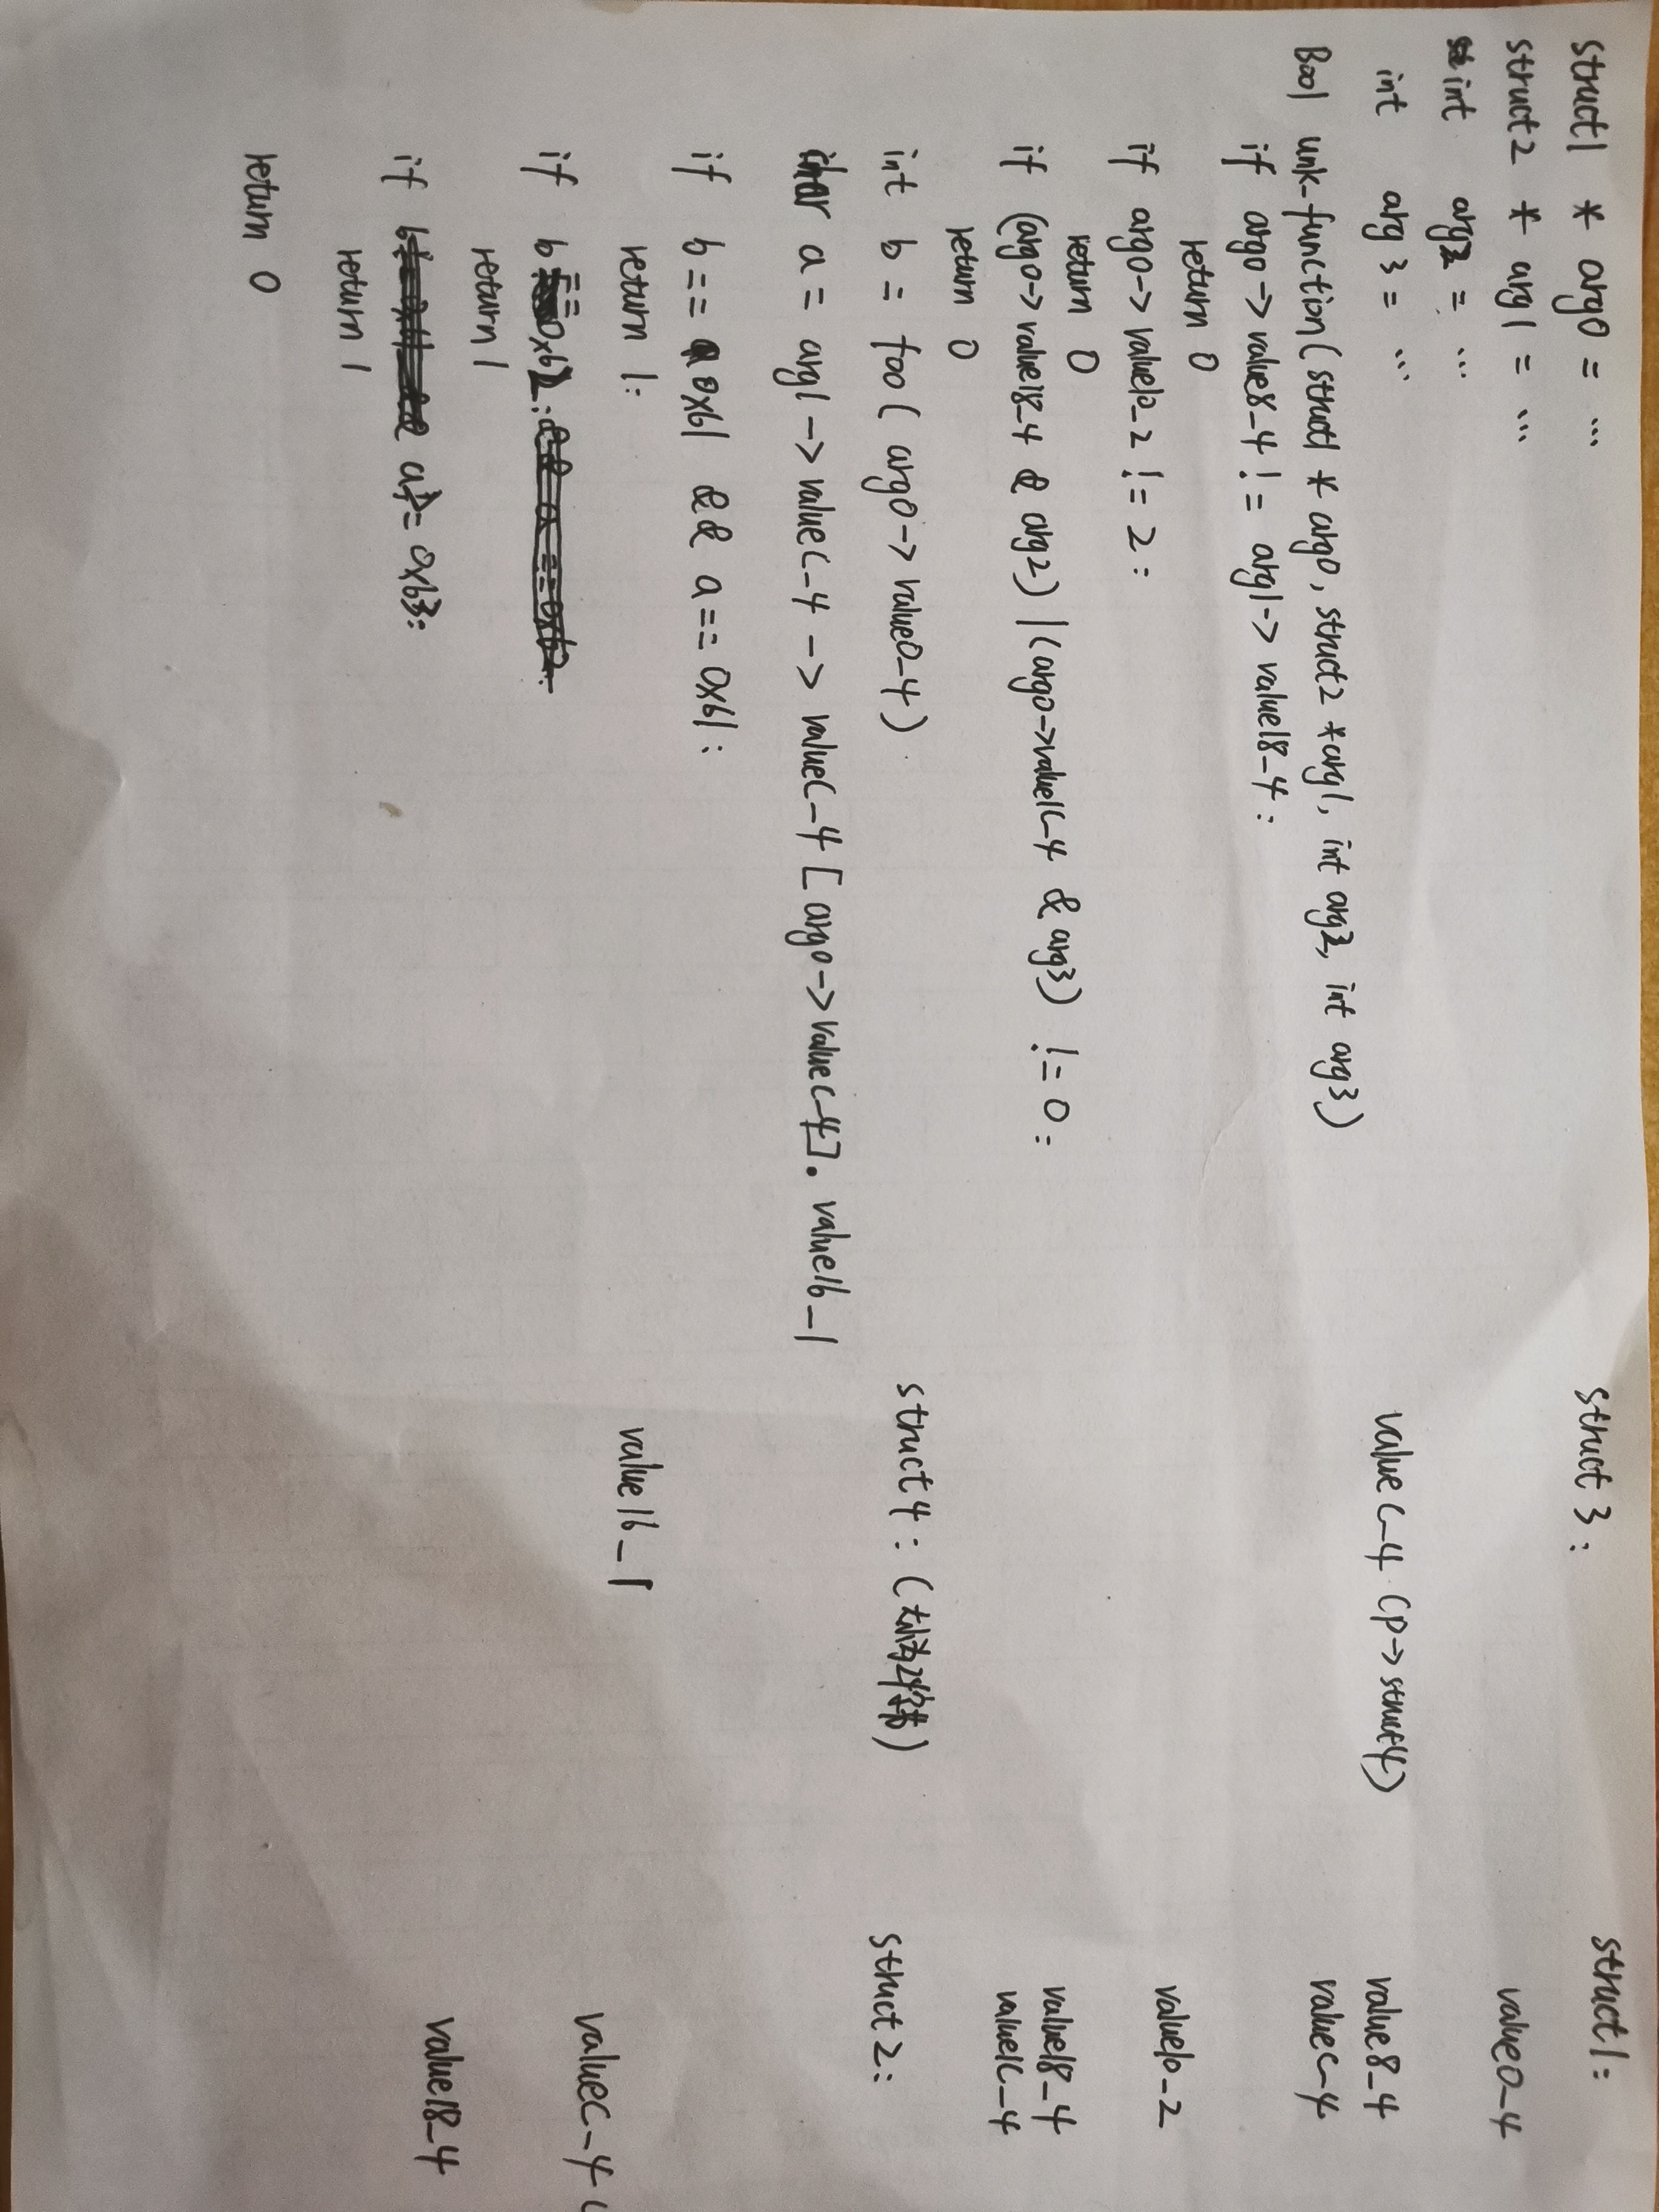 struct1 * arg0 = ...
struct2 * arg1 = ...
int arg2 = ...
int arg3 = ...
Bool unk_function(struct1 * arg0, struct2 *arg1, int arg2, int arg3)
if arg0->value8_4 != arg1->value18_4:
return 0
if arg0->value10_2 != 2:
return 0
if (arg0->value18_4 & arg2) | (arg0->value1C_4 & arg3) != 0:
return 0
int b = foo( arg0->value0_4)
char a = arg1->valueC_4->valueC_4[arg0->valueC_4].value16_1
if b == 0x61 && a == 0x61:
return 1:
if b == 0x62:
return 1
if a != 0x63:
return 1
return 0
struct3:
valueC_4 (P->struct4)
struct4: (大小为24字节)
value16_1
struct1:
value0_4
value8_4
valueC_4
value10_2
value18_4
value1C_4
struct2:
valueC_4 (
value18_4